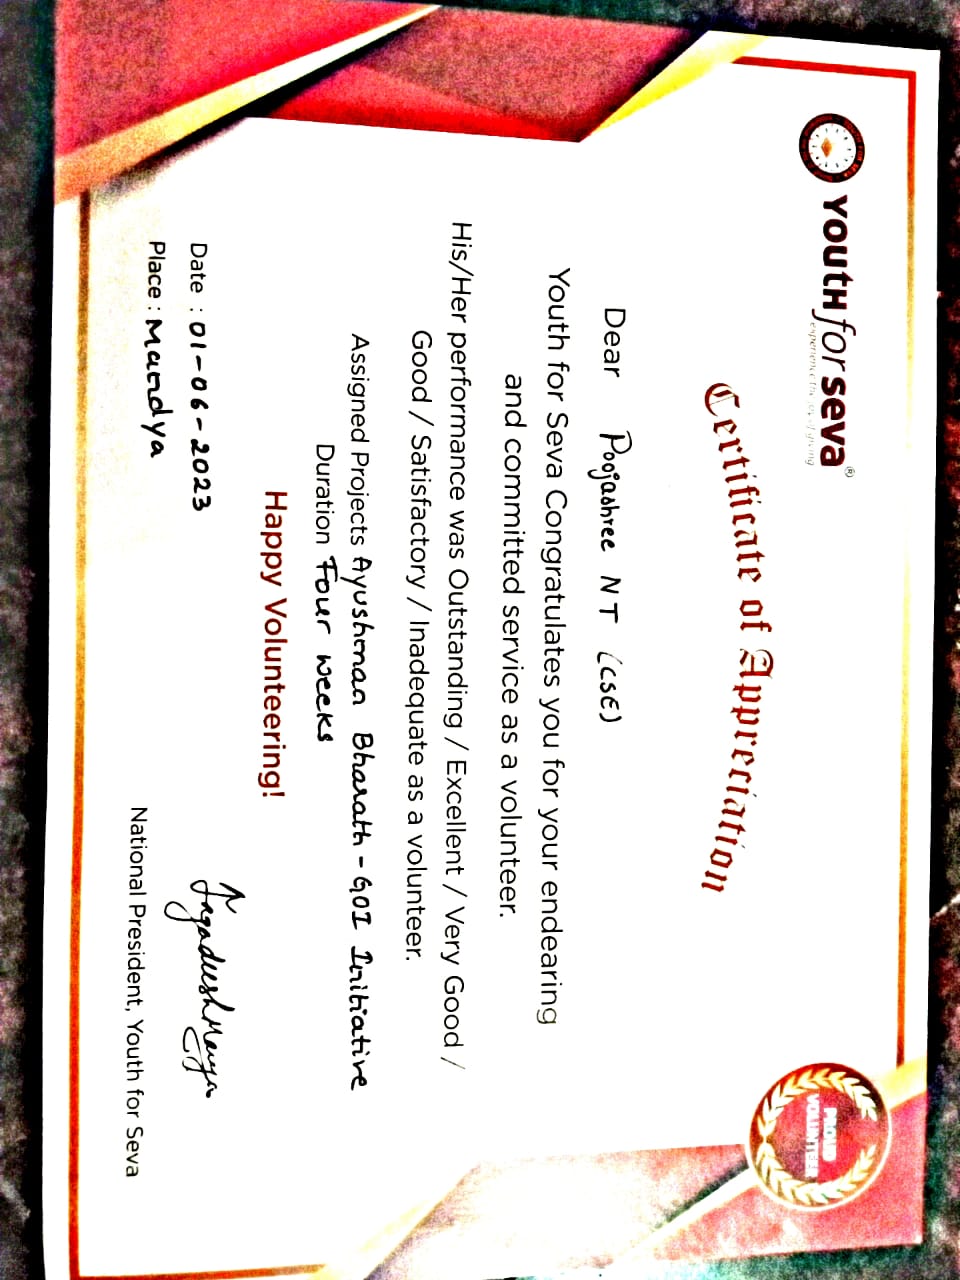 YOUTH for SEVA®
experience the joy of giving
PROUD
VOLUNTEER
Certificate of Appreciation
Dear Poojashree NT (CSE)
Youth for Seva Congratulates you for your endearing
and committed service as a volunteer.
His/Her performance was Outstanding / Excellent / Very Good /
Good / Satisfactory / Inadequate as a volunteer.
Assigned Projects Ayushman Bharath - GOI Initiative
Duration Four weeks
Happy Volunteering!
Date : 01-06-2023
Place : Mandya
National President, Youth for Seva